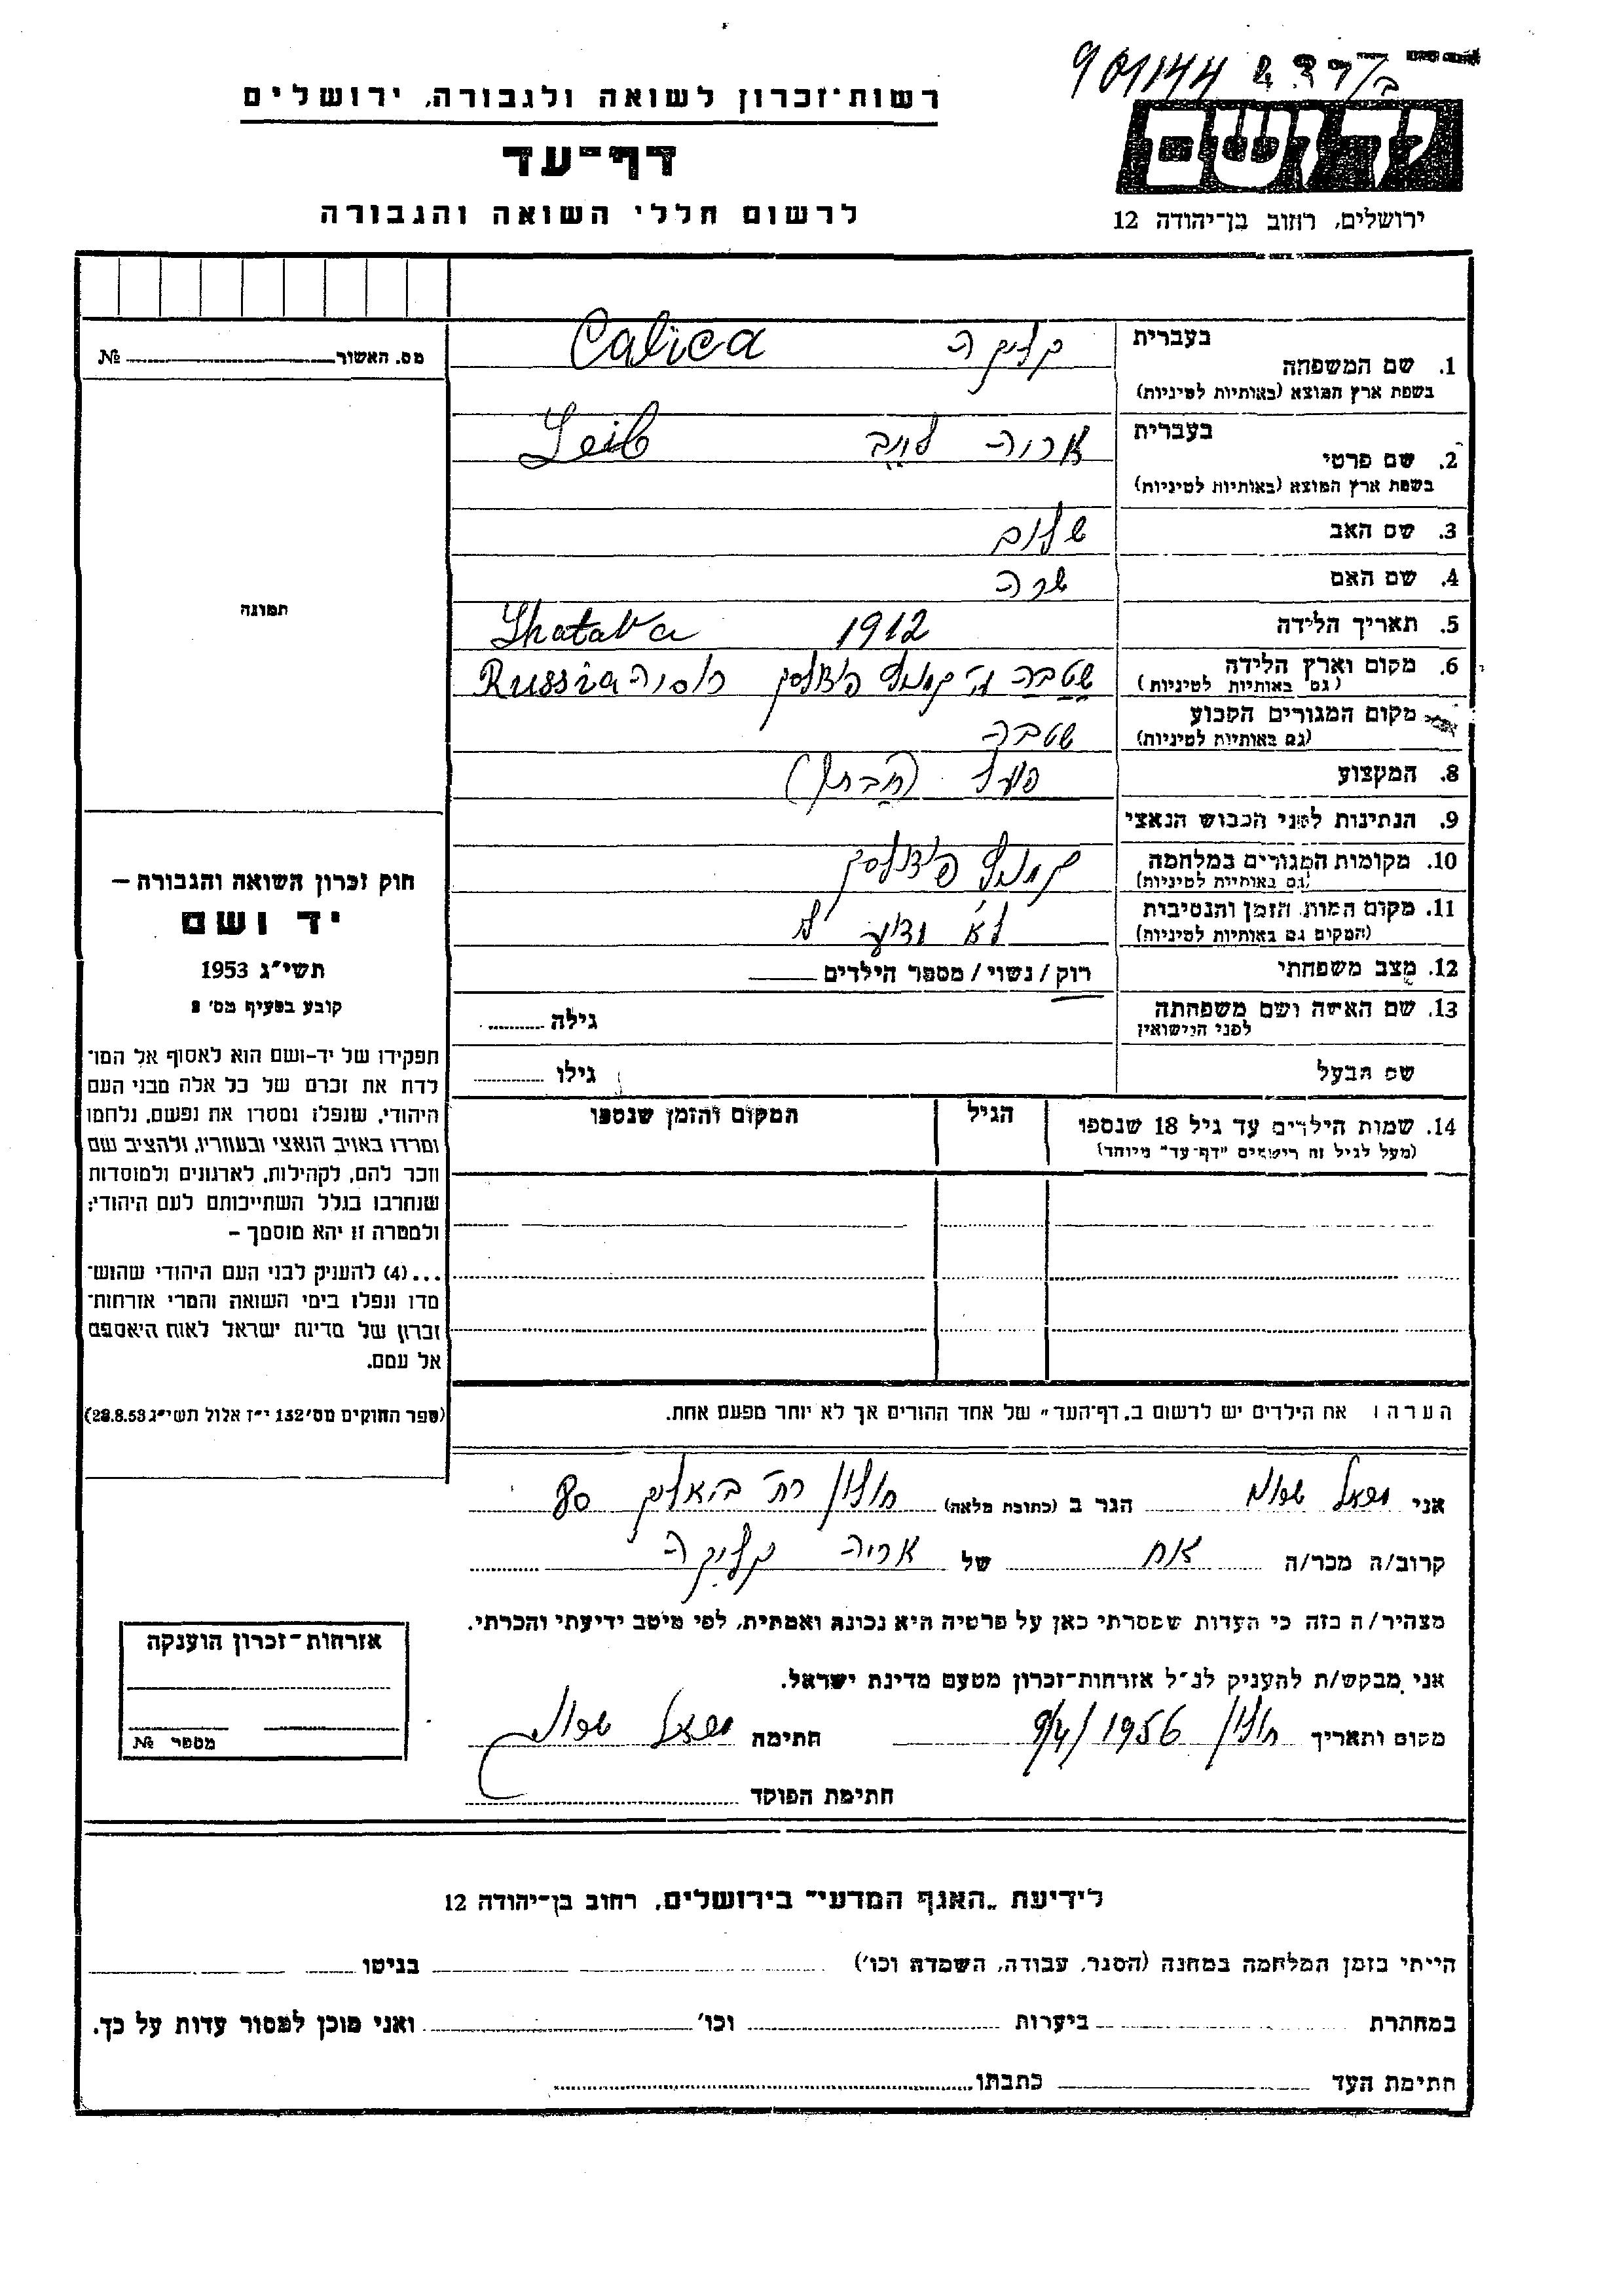 901144 ב/ 437
רשות־זכרון לשואה ולגבורה, ירושלים
יד ושם
דף־עד
ירושלים, רחוב בן־יהודה 12
לרשום חללי השואה והגבורה
מס. האשור №
בעברית
1. שם המשפחה
בשפת ארץ המוצא (באותיות לטיניות)
קליקה Calica
בעברית
2. שם פרטי
בשפת ארץ המוצא (באותיות לטיניות)
אריה לייב Leib
3. שם האב שלום
4. שם האם שרה
5. תאריך הלידה 1912
6. מקום וארץ הלידה
(גם באותיות לטיניות)
Shatava
שטבה קמניץ פודולסק רוסיה Russia
מקום המגורים הקבוע
(גם באותיות לטיניות)
שטבה
8. המקצוע פועל
9. הנתינות לפני הכבוש הנאצי
10. מקומות המגורים במלחמה
(גם באותיות לטיניות)
קמניץ פודולסק
11. מקום המות, הזמן והנסיבות
(המקום גם באותיות לטיניות)
לא ידוע לי
12. מצב משפחתי רוק / נשוי / מספר הילדים
13. שם האישה ושם משפחתה
לפני הנישואין
גילה
שם הבעל גילו
14. שמות הילדים עד גיל 18 שנספו
(מעל לגיל זה רישמים "דף־עד" מיוחד)
הגיל
המקום והזמן שנספו
תמונה
חוק זכרון השואה והגבורה –
יד ושם
תשי"ג 1953
קובע בסעיף מס' 2
תפקידו של יד-ושם הוא לאסוף אל המו־
לדת את זכרם של כל אלה מבני העם
היהודי, שנפלו ומסרו את נפשם, נלחמו
ומרדו באויב הנאצי ובעוזריו, ולהציב שם
וזכר להם, לקהילות, לארגונים ולמוסדות
שנחרבו בגלל השתייכותם לעם היהודי;
ולמטרה זו יהא מוסמך –
...(4) להעניק לבני העם היהודי שהוש־
מדו ונפלו בימי השואה והמרי אזרחות־
זכרון של מדינת ישראל לאות היאספם
אל עמם.
(ספר החוקים מס' 132 י"ז אלול תשי"ג 28.8.53)
הערה: את הילדים יש לרשום ב„דף־העד" של אחד ההורים אך לא יותר מפעם אחת.
אני הגר ב (כתובת מלאה) חולון 80
קרוב/ה מכר/ה אח של אריה קליקה
מצהיר/ה בזה כי העדות שמסרתי כאן על פרטיה היא נכונה ואמתית, לפי מיטב ידיעתי והכרתי.
אני מבקש/ת להעניק לנ"ל אזרחות־זכרון מטעם מדינת ישראל.
מקום ותאריך חולון 9/4/1956 חתימה
חתימת הפוקד
אזרחות־זכרון הוענקה
מספר №
לידיעת „האגף המדעי" בירושלים, רחוב בן־יהודה 12
הייתי בזמן המלחמה במחנה (הסגר, עבודה, השמדה וכו') בגיטו
במחתרת ביערות וכו' ואני מוכן למסור עדות על כך.
חתימת העד כתבתו